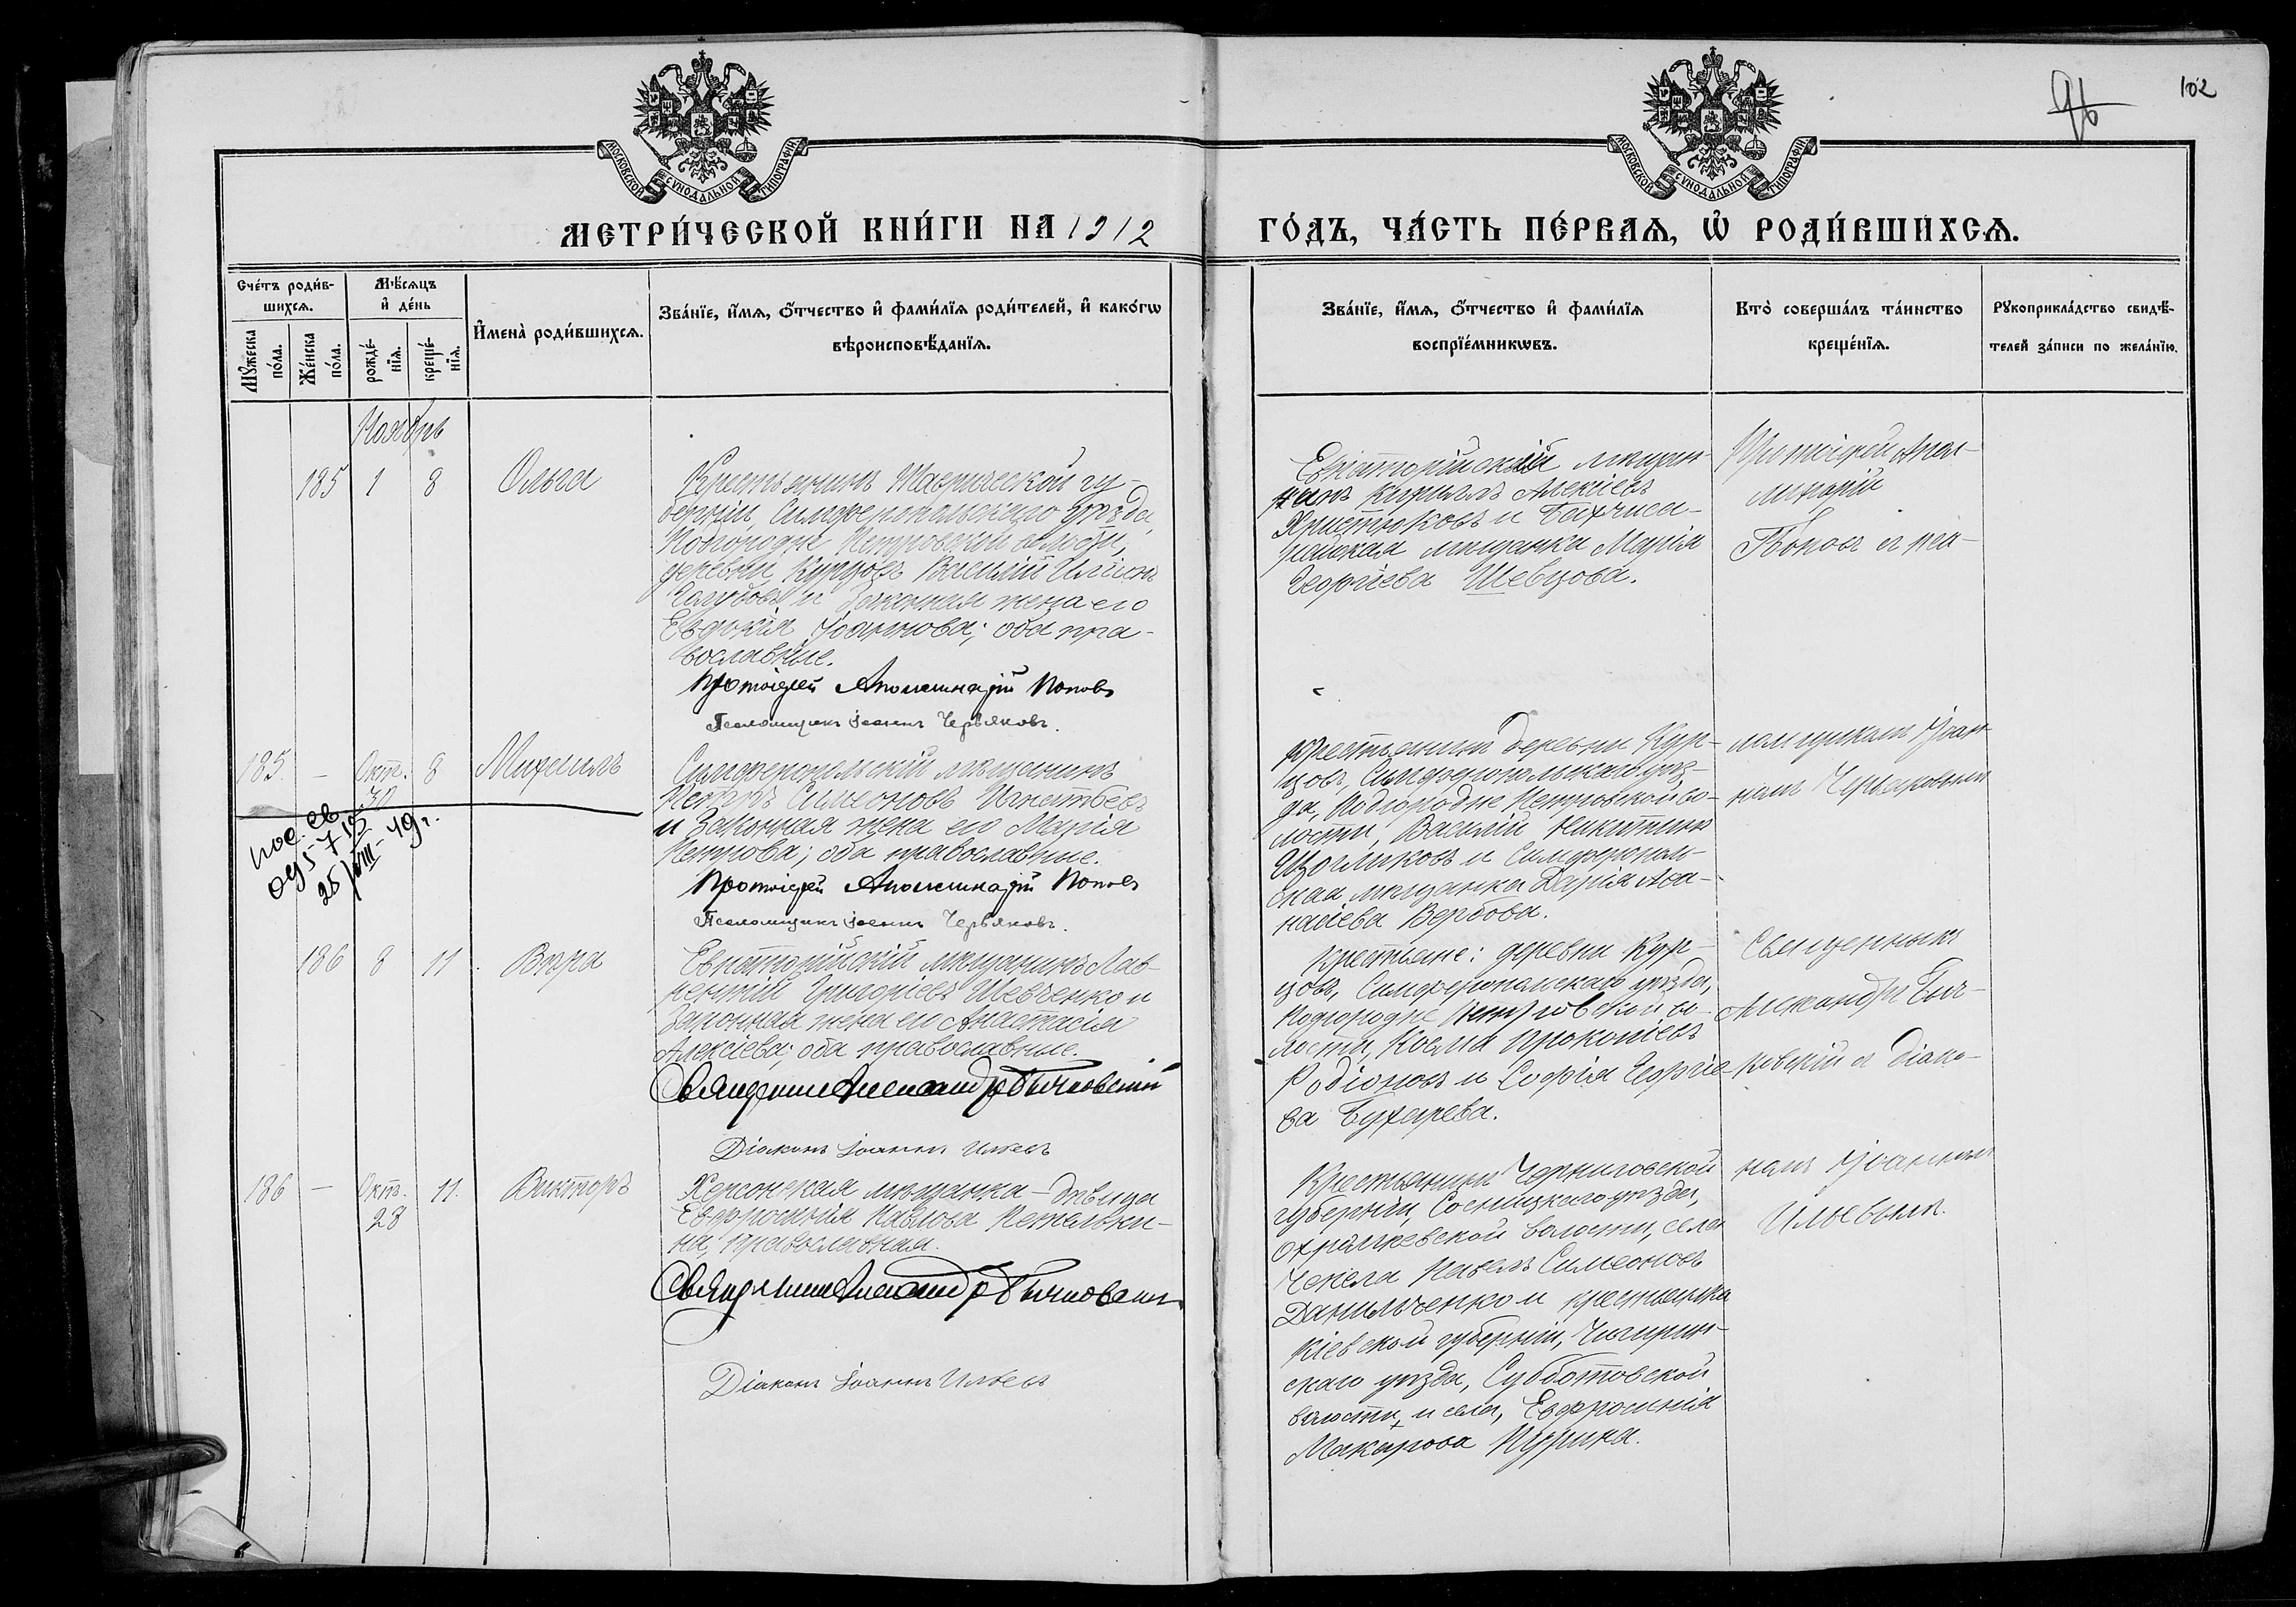 96
102
МОСКОВСКОЙ СѴНОДАЛЬНОЙ ТИПОГРАФІИ
МОСКОВСКОЙ СѴНОДАЛЬНОЙ ТИПОГРАФІИ
МЕТРИ́ЧЕСКОЙ КНИ́ГИ НА 1912
ГО́ДЪ, ЧА́СТЬ ПЕ́РВАѦ, Ѡ҆ РОДИ́ВШИХСѦ.
Сче́тъ роди́в-
шихсѧ.
Мꙋ́жеска
по́ла.
Же́нска
по́ла.
Мѣ́сѧцъ
и҆ де́нь
рожде́-
нїѧ.
креще́-
нїѧ.
И҆мена̀ роди́вшихсѧ.
Зва́нїе, и҆́мѧ, ѻ҆́тчество и҆ фами́лїѧ роди́телей, и҆ како́гѡ
вѣроисповѣ́данїѧ.
Зва́нїе, и҆́мѧ, ѻ҆́тчество и҆ фами́лїѧ
воспрїе́мникѡвъ.
Кто̀ соверша́лъ та́инство
креще́нїѧ.
Рꙋкоприкла́дство свидѣ́-
телей за́писи по жела́нїю.
Ноябрь
185 1 8 Ольга
Крестьянинъ Таврической гу-
берніи, Симферопольскаго уѣзда,
Подгородне Петровской волости,
деревни Курцовъ Василій Иліинъ
и законная жена его
Евдокія Іоаннова; оба пра-
вославные.
Протоіерей Аполлинарій Поповъ
Псаломщикъ Іоаннъ Червяковъ.
Евпаторійскій мѣщан-
инъ Кириллъ Алексіевъ
Христюковъ и Бахчиса-
райская мѣщанка Марія
Георгіева Шевцова.
Протоіерей Апол-
линарій
Поповъ и пса-
185. — Окт. 30 8 Михаилъ
пос. св
25/VIII-49г.
Симферопольскій мѣщанинъ
Петръ Симеоновъ Игнатьевъ
и законная жена его Марія
Петрова; оба православные.
Протоіерей Аполлинарій Поповъ
Псаломщикъ Іоаннъ Червяковъ.
Крестьянинъ деревни Кур-
цовъ, Симферопольскаго уѣз-
да, Подгородне Петровской во-
лости, Василій Никитинъ
и Симферополь-
ская мѣщанка Дарія Аѳа-
насіева Вербова.
ломщикомъ Іоан-
номъ Червяковымъ
186 8 11. Вѣра
Евпаторійскій мѣщанинъ Лав-
рентій Григоріевъ Шевченко и
законная жена его Анастасія
Алексіева; оба православные.
Священникъ Александръ Бычковскій
Діаконъ Іоаннъ Ильевъ
Крестьяне: деревни Кур-
цовъ, Симферопольскаго уѣзда,
Подгородне Петровской во-
лости, Косма Прокопіевъ
Родіоновъ и Софія Георгіе-
ва Бухарева.
Священникъ
Александръ Быч-
ковскій и діако-
186 — Окт. 28 11. Викторъ
Херсонская мѣщанка — дѣвица
Евфросинія Павлова
на, православная.
Священникъ Александръ Бычковскій
Діаконъ Іоаннъ Ильевъ
Крестьянинъ Черниговской
губерніи, Сосницкаго уѣзда,
Охрамѣевской волости, села
Чепела Павелъ Симеоновъ
Данильченко и крестьянка
Кіевской губерніи, Чигирин-
скаго уѣзда, Субботовской
волости и села, Евфросинія
Макарова
номъ Іоанномъ
Ильевымъ.